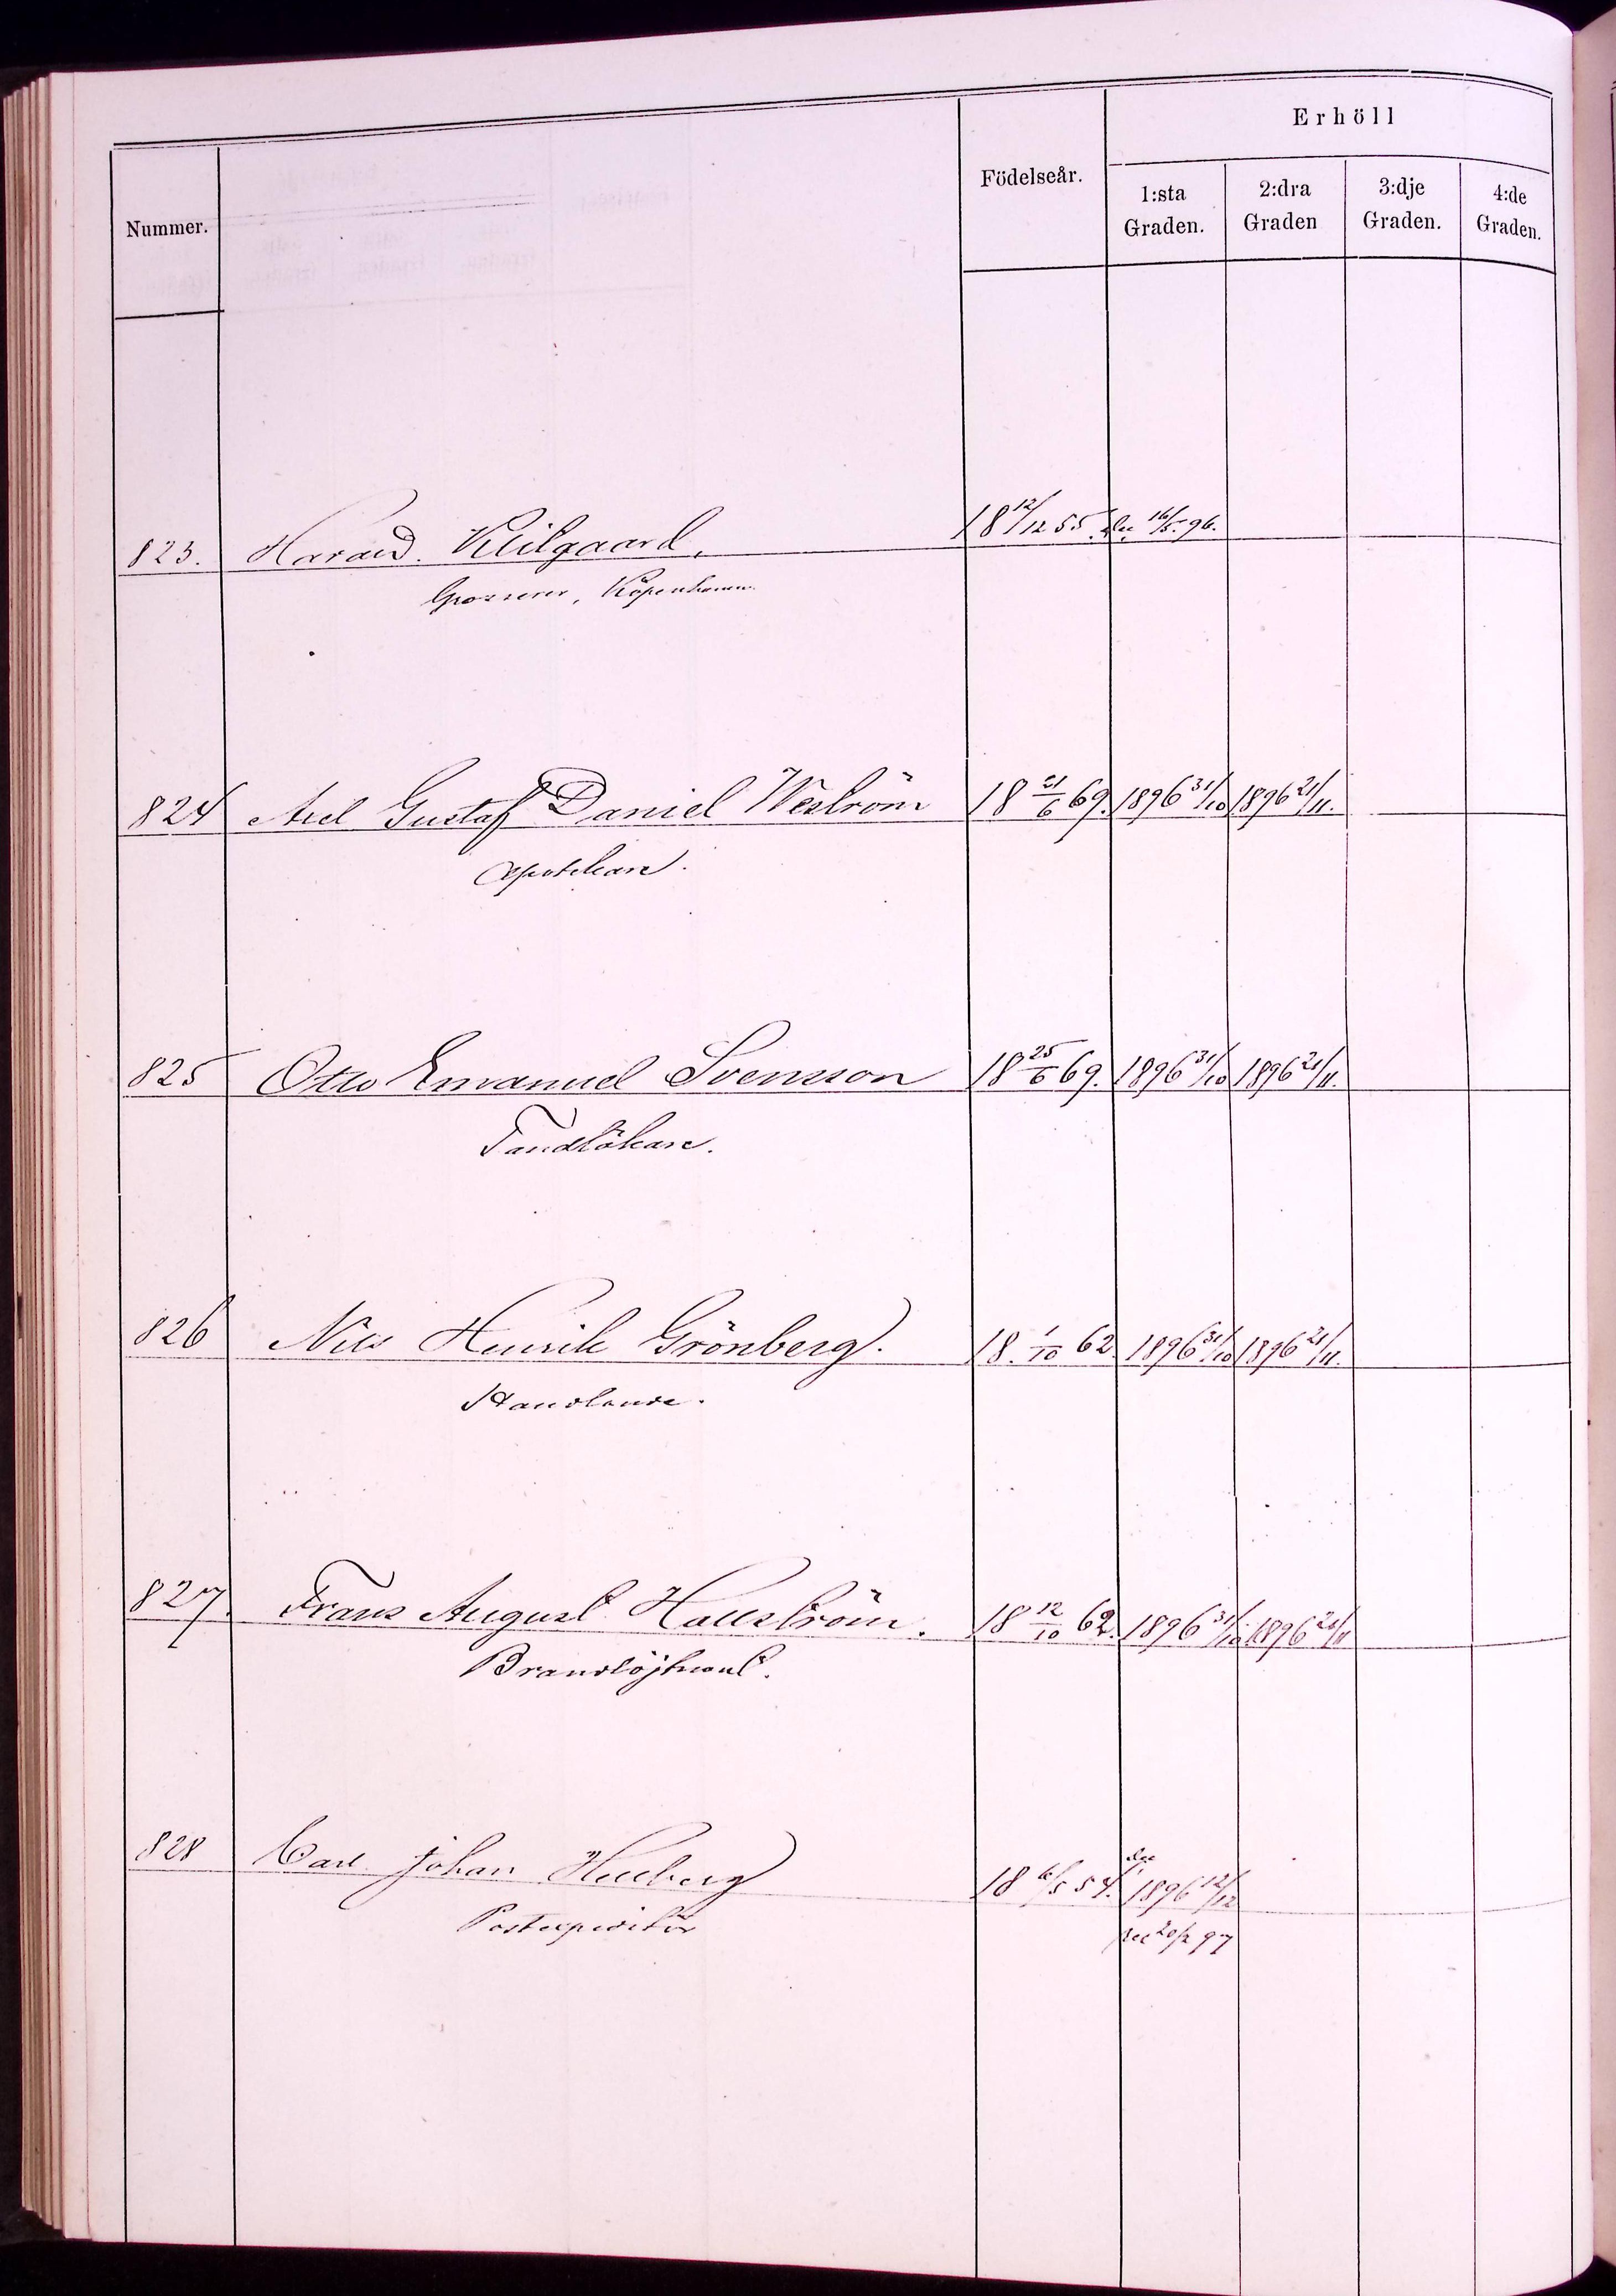 Erhöll
Nummer. Födelseår. 1:sta Graden. 2:dra Graden 3:dje Graden. 4:de Graden.
823. Harald Kliilgaard. 18 12/12 55. 16/5. 96.
Grosserer, Köpenhamn.
824 Axel Gustaf Daniel Weström 18 21/6 69. 1896 31/10 1896 21/11.
Apotekare.
825 Otto Emanuel Svensson 18 25/6 69. 1896 31/10 1896 21/11.
Tandläkare.
826 Nils Henrik Grönberg. 18. 1/10 62. 1896 31/10 1896 21/11.
Handlande.
827. Frans August Hallström. 18 12/10 62. 1896 31/10 1896 21/11
Brandlöjtnant.
828 Carl Johan Hellberg 18 6/5 54. 1896 12/12
Postexpeditör rec 20/2 97